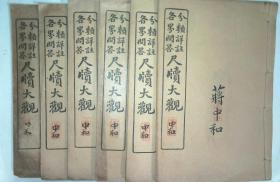 分類詳註
各界問答
尺牘大觀
中和
分類詳註
各界問答
尺牘大觀
中和
分類詳註
各界問答
尺牘大觀
中和
分類詳註
各界問答
尺牘大觀
中和
分類詳註
各界問答
尺牘大觀
中和
分類詳註
各界問答
尺牘大觀
中和
蔣中和